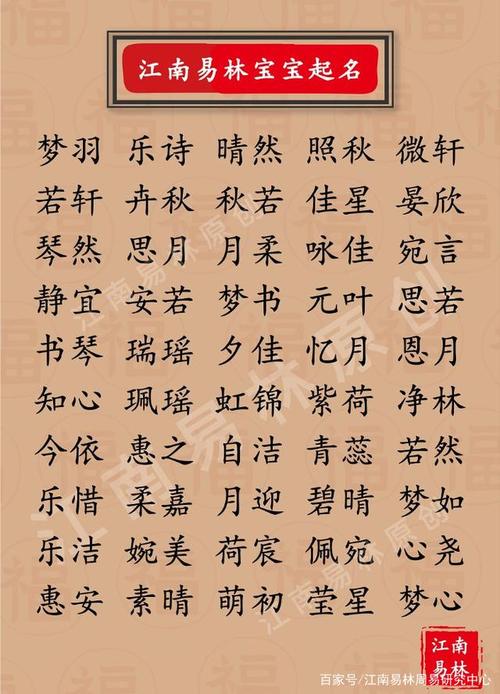 江南易林宝宝起名
梦羽 乐诗 晴然 照秋 微轩
若轩 卉秋 秋若 佳星 晏欣
琴然 思月 月柔 咏佳 宛言
静宜 安若 梦书 元叶 思若
书琴 瑞瑶 夕佳 忆月 恩月
知心 珮瑶 虹锦 紫荷 净林
今依 惠之 自洁 青蕊 若然
乐惜 柔嘉 月迎 碧晴 梦如
乐洁 婉美 荷宸 佩宛 心尧
惠安 素晴 萌初 莹星 梦心
江南易林原创
江南易林原创
江南易林原创
江南
易林
百家号/江南易林周易研究中心